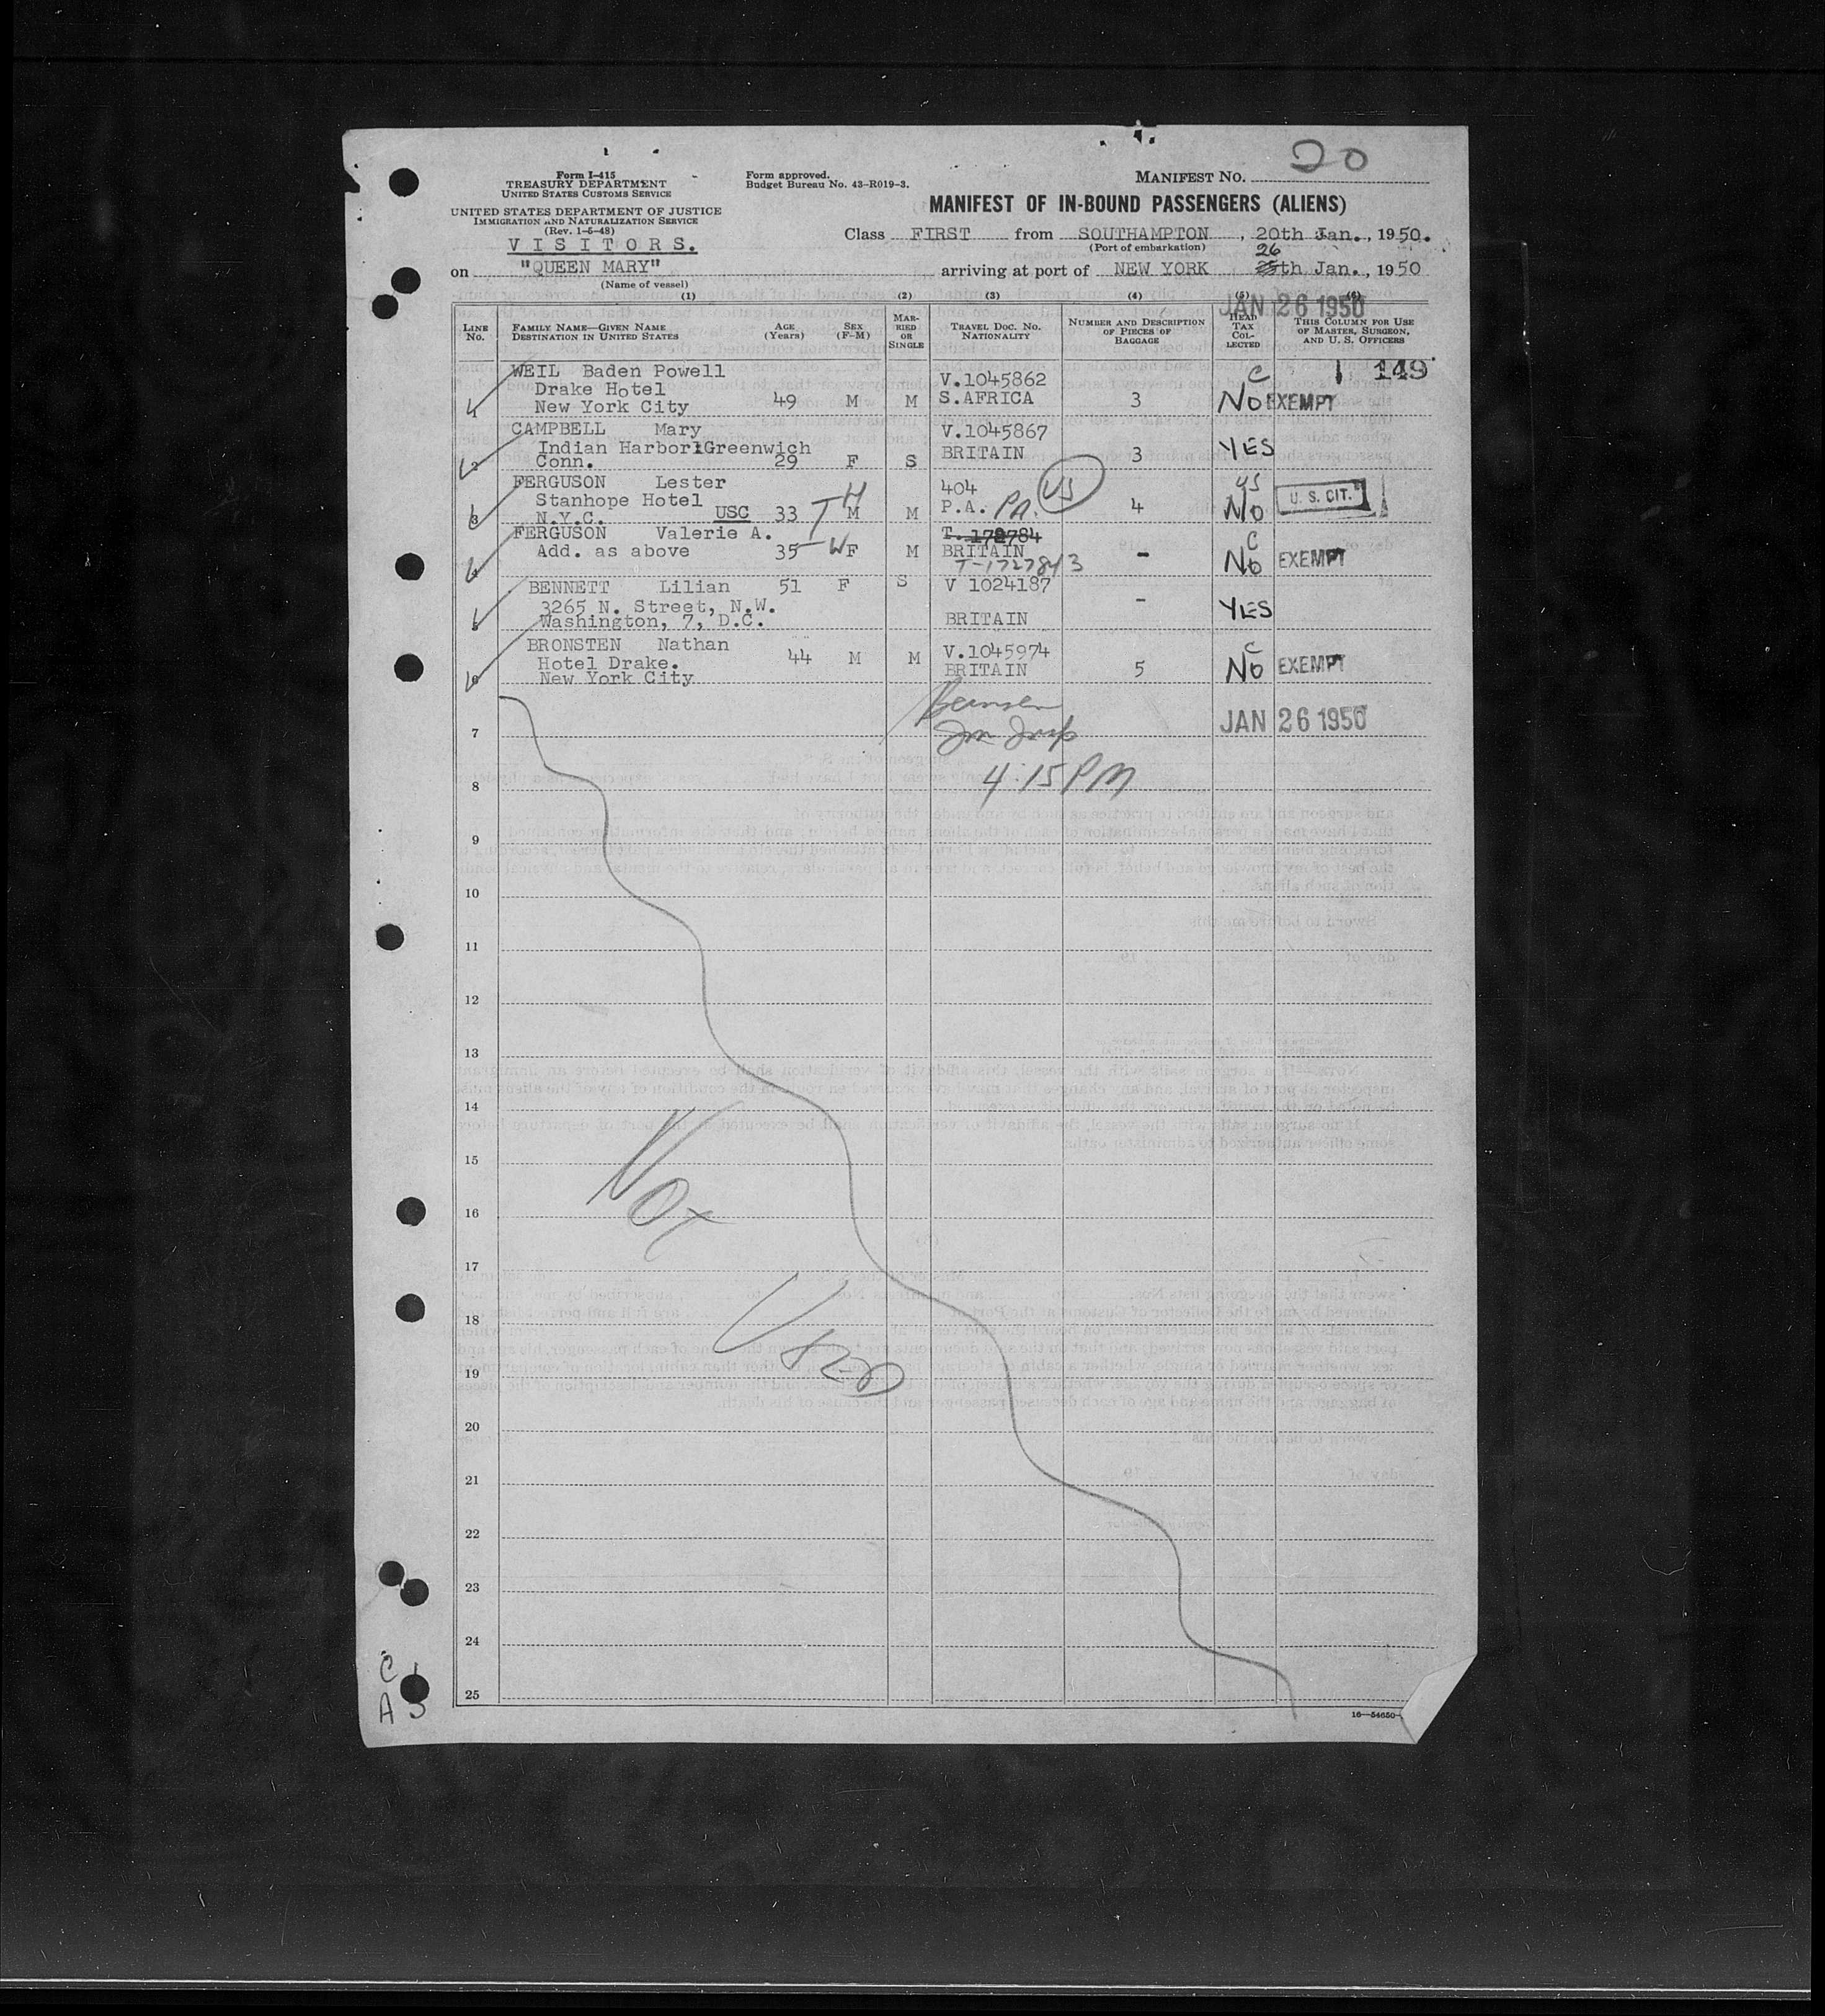 20
Form I-415
TREASURY DEPARTMENT
UNITED STATES CUSTOMS SERVICE
Form approved.
Budget Bureau No. 43-R019-3.
MANIFEST NO.
UNITED STATES DEPARTMENT OF JUSTICE
IMMIGRATION AND NATURALIZATION SERVICE
(Rev. 1-5-48)
MANIFEST OF IN-BOUND PASSENGERS (ALIENS)
VISITORS.
Class FIRST from SOUTHAMPTON, 20th Jan., 1950.
(Port of embarkation)
26
on "QUEEN MARY" arriving at port of NEW YORK 25th Jan., 1950
(Name of vessel)
(1) (2) (3) (4) (5) (6)
JAN 26 1950
LINE No. FAMILY NAME—GIVEN NAME DESTINATION IN UNITED STATES AGE (Years) SEX (F-M) MARRIED OR SINGLE TRAVEL DOC. NO. NATIONALITY NUMBER AND DESCRIPTION OF PIECES OF BAGGAGE HEAD TAX COLLECTED THIS COLUMN FOR USE OF MASTER, SURGEON, AND U. S. OFFICERS
WEIL Baden Powell V.1045862 C 149
Drake Hotel
1 New York City 49 M M S.AFRICA 3 No EXEMPT
CAMPBELL Mary V.1045867
Indian Harbor Greenwich BRITAIN 3 YES
2 Conn. 29 F S
FERGUSON Lester 404 US US
Stanhope Hotel H P.A. PA. 4 No U. S. CIT.
3 N.Y.C. USC 33 M M
FERGUSON Valerie A. T. 172784 C
Add. as above 35 W F M BRITAIN - No EXEMPT
4 T-1727843
BENNETT Lilian 51 F S V 1024187
3265 N. Street, N.W. - YES
5 Washington, 7, D.C. BRITAIN
BRONSTEN Nathan V.1045974 C
Hotel Drake. 44 M M BRITAIN 5 No EXEMPT
6 New York City
7 JAN 26 1950
4:15 PM
8
9
10
11
12
13
14
15
NOT
16
17
18
USED
19
20
21
22
23
24
C
25
A 5
16—54650-